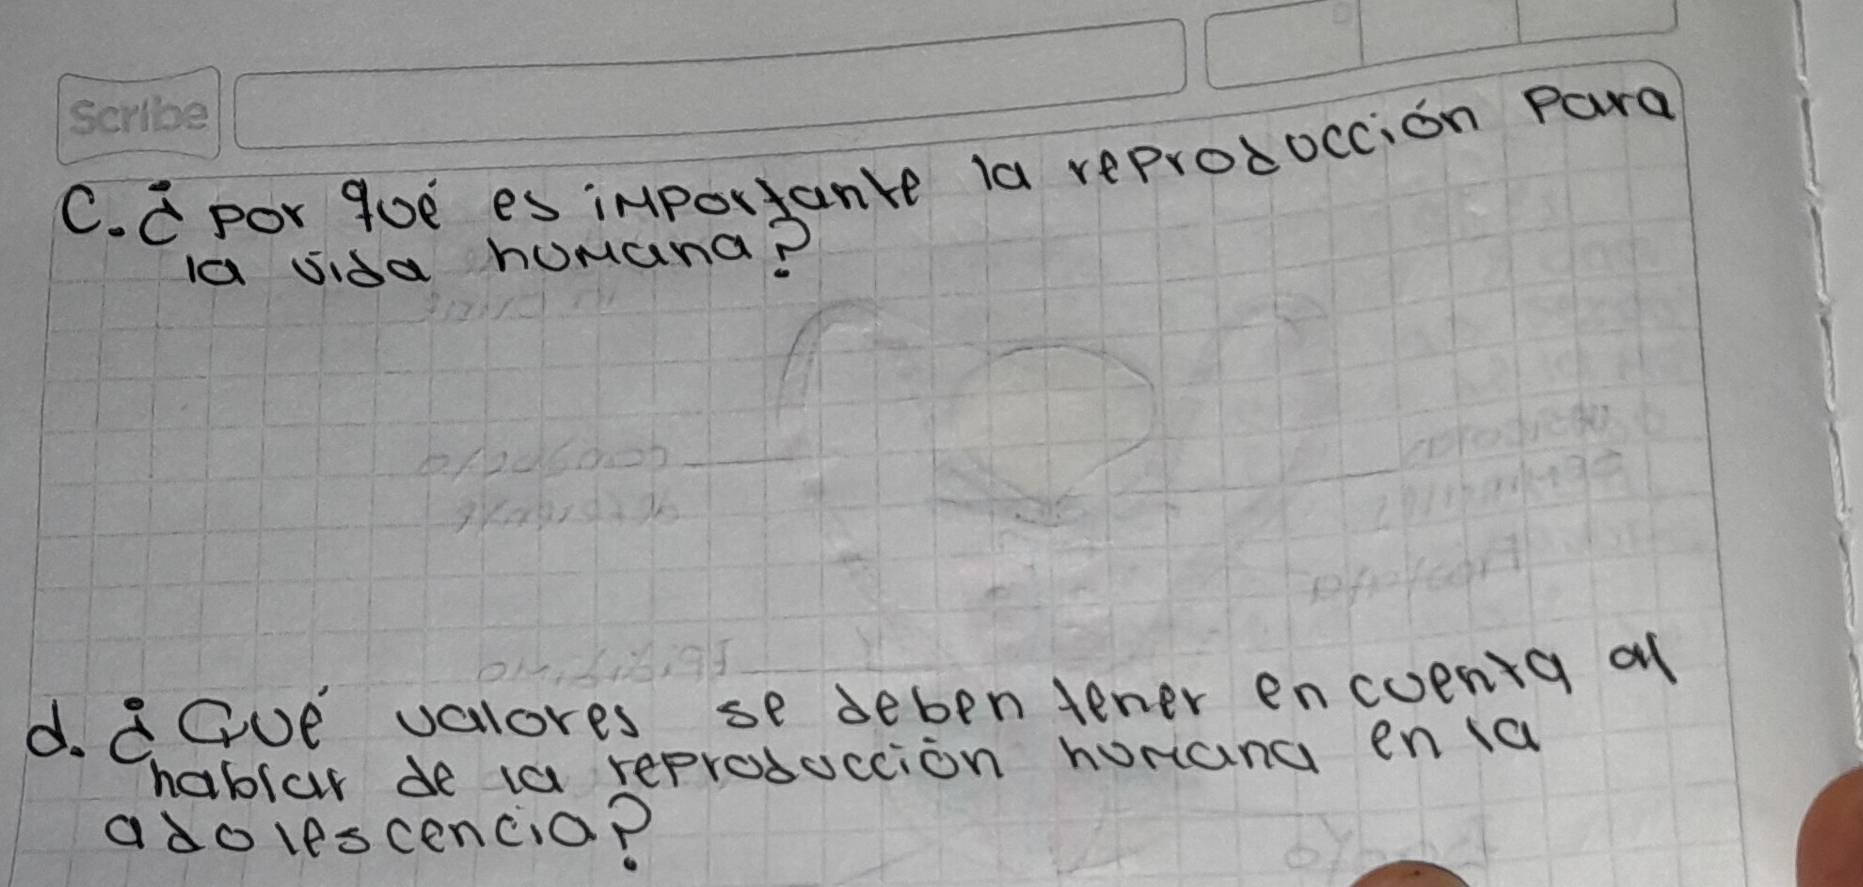 Scribe
C. ¿ Por qué es importante la reproducción Para
la vida humana?
d. ¿ Qué valores se deben tener en cuenta al
hablar de la reproducción humana en la
adolescencia?